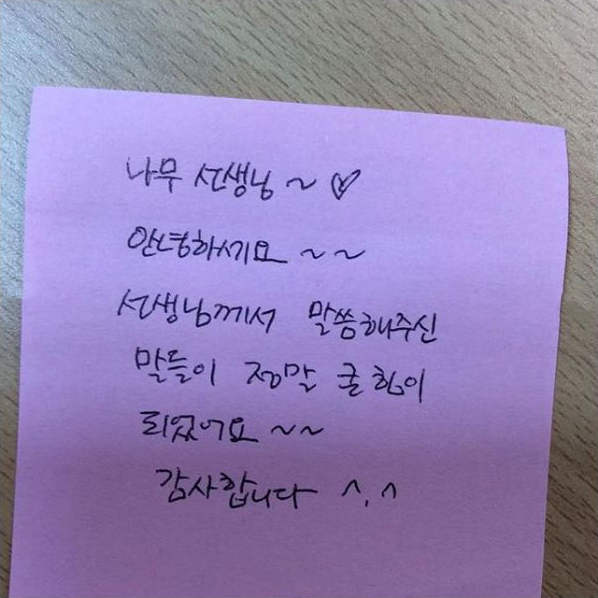 나무 선생님 ~ ♡
안녕하세요 ~ ~
선생님께서 말씀해주신
말들이 정말 큰 힘이
되었어요 ~~
감사합니다 ^.^